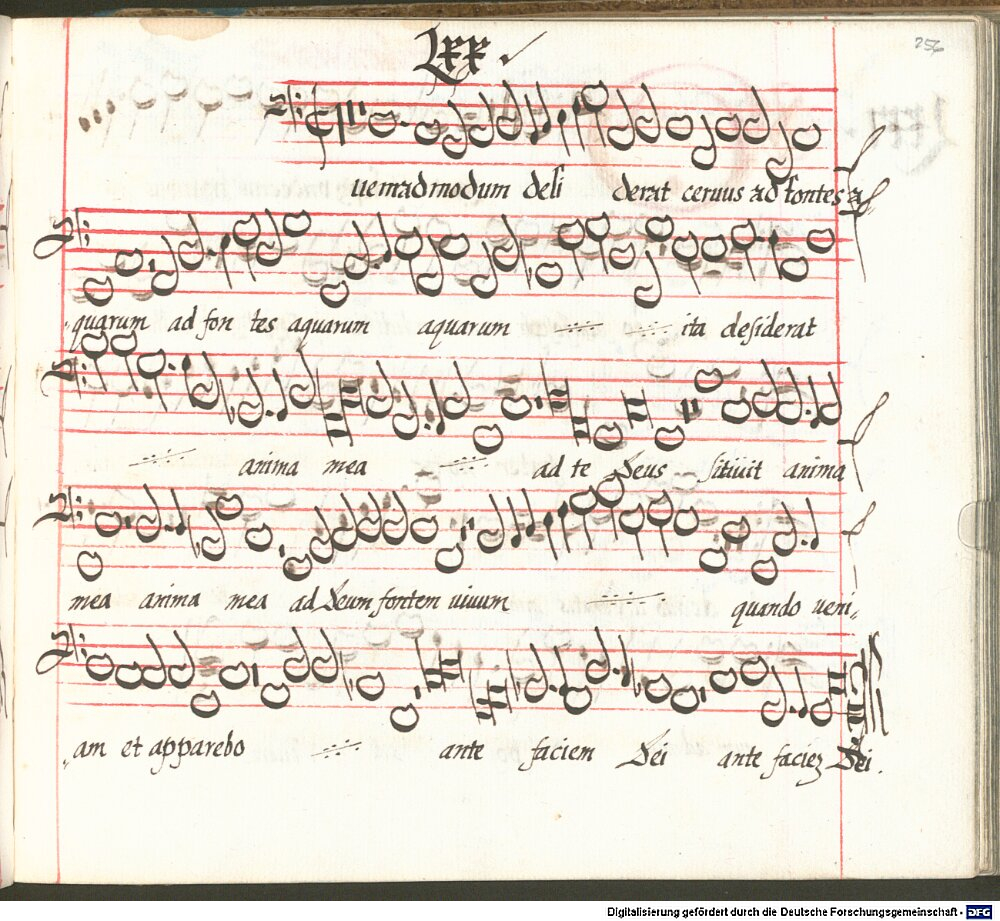 Lxx.
256
uemadmodum desiderat ceruus ad fontes a
quarum ad fontes aquarum aquarum ita desiderat
anima mea ad te Deus sitiuit anima
mea anima mea ad Deum fontem uiuum quando ueni
am et apparebo ante faciem Dei ante facieʒ Dei.
Digitalisierung gefördert durch die Deutsche Forschungsgemeinschaft - DFG